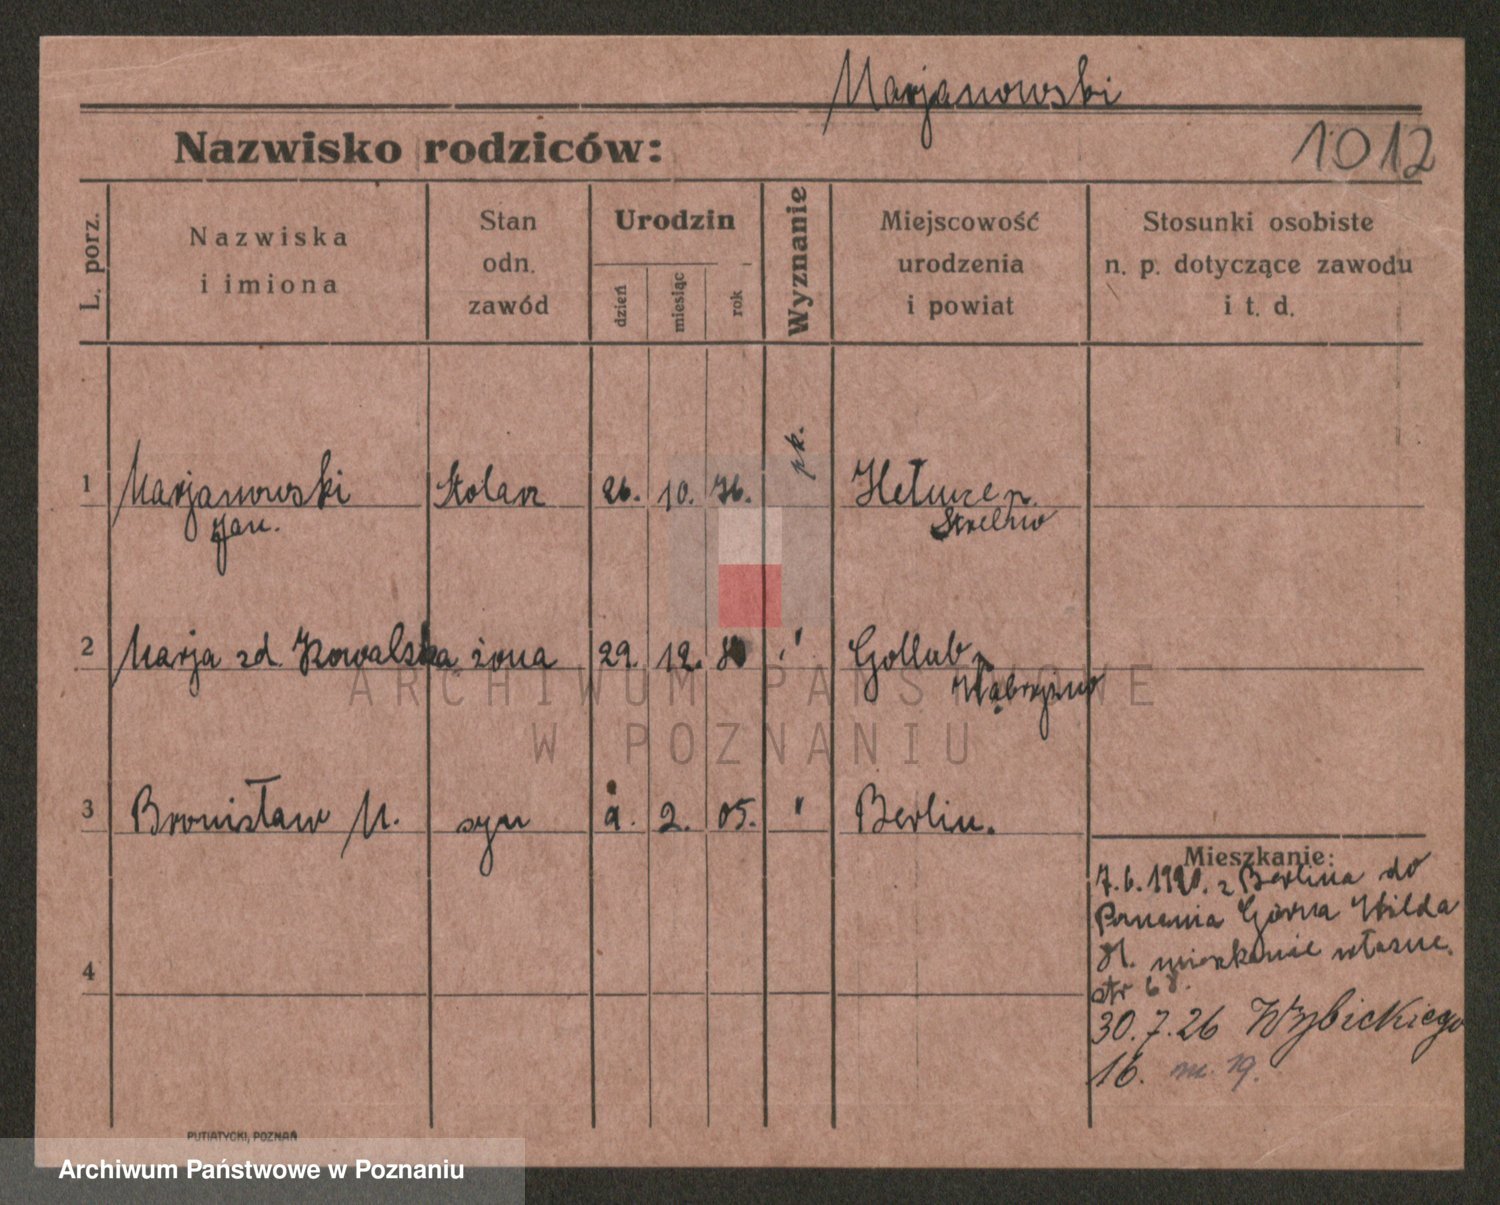 Marjanowski
Nazwisko rodziców:
1012
L. porz.
Nazwiska
i imiona
Stan
odn.
zawód
Urodzin
dzień
miesiąc
rok
Wyznanie
Miejscowość
urodzenia
i powiat
Stosunki osobiste
n. p. dotyczące zawodu
i t. d.
1 Marjanowski Stolarz 26. 10. 76. rk.
Jan. Strelno
2 Marja zd. Kowalska żona 29. 12. " Gollub
Wąbrzeźno
3 Bronisław M. syn 2. 05. " Berlin.
4
Mieszkanie:
7.6.1920. z Berlina do
Poznania Górna Wilda
mieszkanie własne.
str 68.
30.7.26 Wybickiego
16. m. 19.
PUTIATYCKI, POZNAŃ
ARCHIWUM PAŃSTWOWE
W POZNANIU
Archiwum Państwowe w Poznaniu